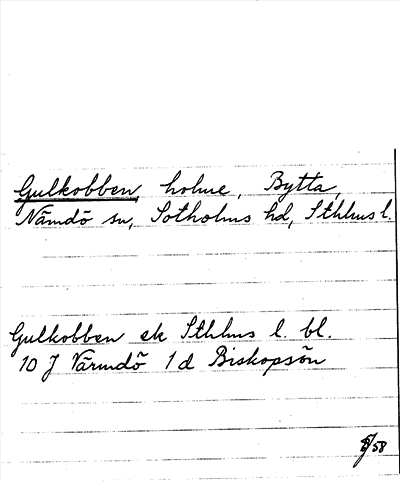 Gulkobben, holme, Bytta,
Nämdö sn, Sotholms hd, Sthlms l.
Gulkobben ek Sthlms l. bl.
10 J Värmdö 1 d Biskopsön
58